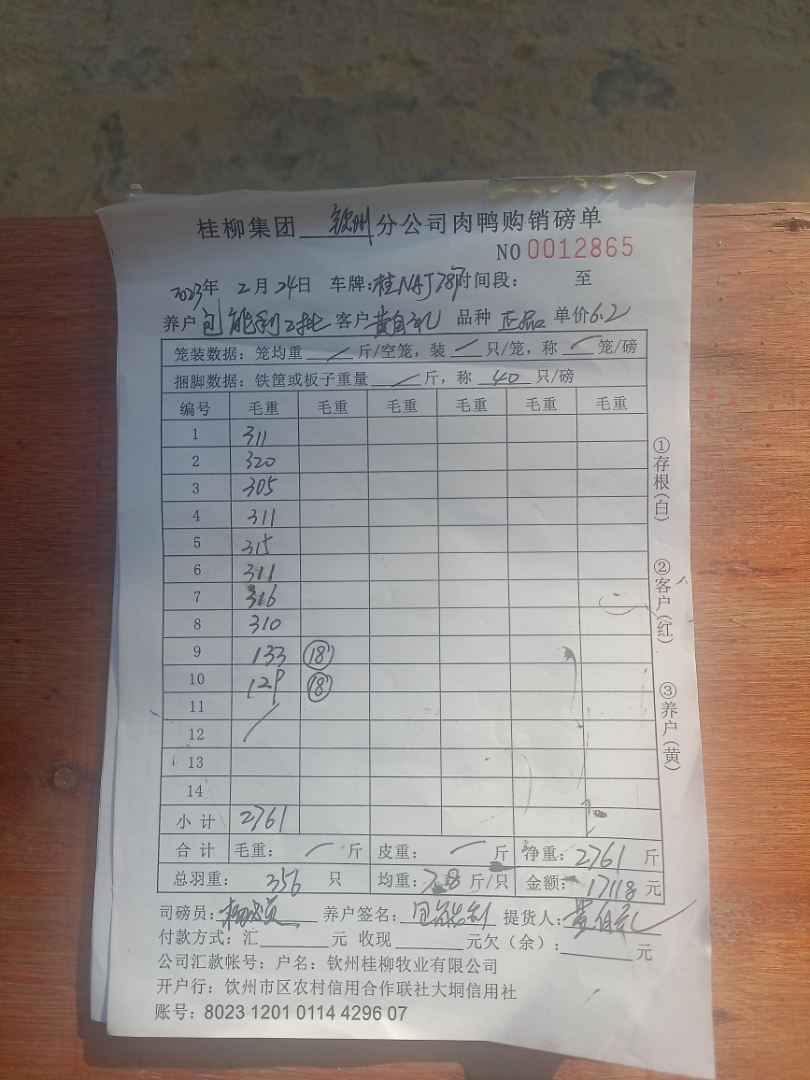 桂柳集团 钦州 分公司肉鸭购销磅单
NO 0012865
2023年 2月 24日 车牌:桂NAJ787 时间段: 至
养户 包能利2批 客户 黄自礼 品种 正品 单价6.2
笼装数据: 笼均重 / 斤/空笼, 装 / 只/笼, 称 / 笼/磅
捆脚数据: 铁筐或板子重量 / 斤, 称 40 只/磅
编号 毛重 毛重 毛重 毛重 毛重 毛重
1 311
2 320
3 305
4 311
5 315
6 311
7 316
8 310
9 133 18'
10 129 18'
11
12
13
14
小计 2761
合计 毛重: / 斤 皮重: / 斤 净重: 2761 斤
总羽重: 356 只 均重: 斤/只 金额: 17118 元
司磅员: 养户签名: 包能利 提货人:
付款方式: 汇 元 收现 元欠(余): 元
公司汇款帐号: 户名: 钦州桂柳牧业有限公司
开户行: 钦州市区农村信用合作联社大垌信用社
账号: 8023 1201 0114 4296 07
①存根(白)
②客户(红)
③养户(黄)